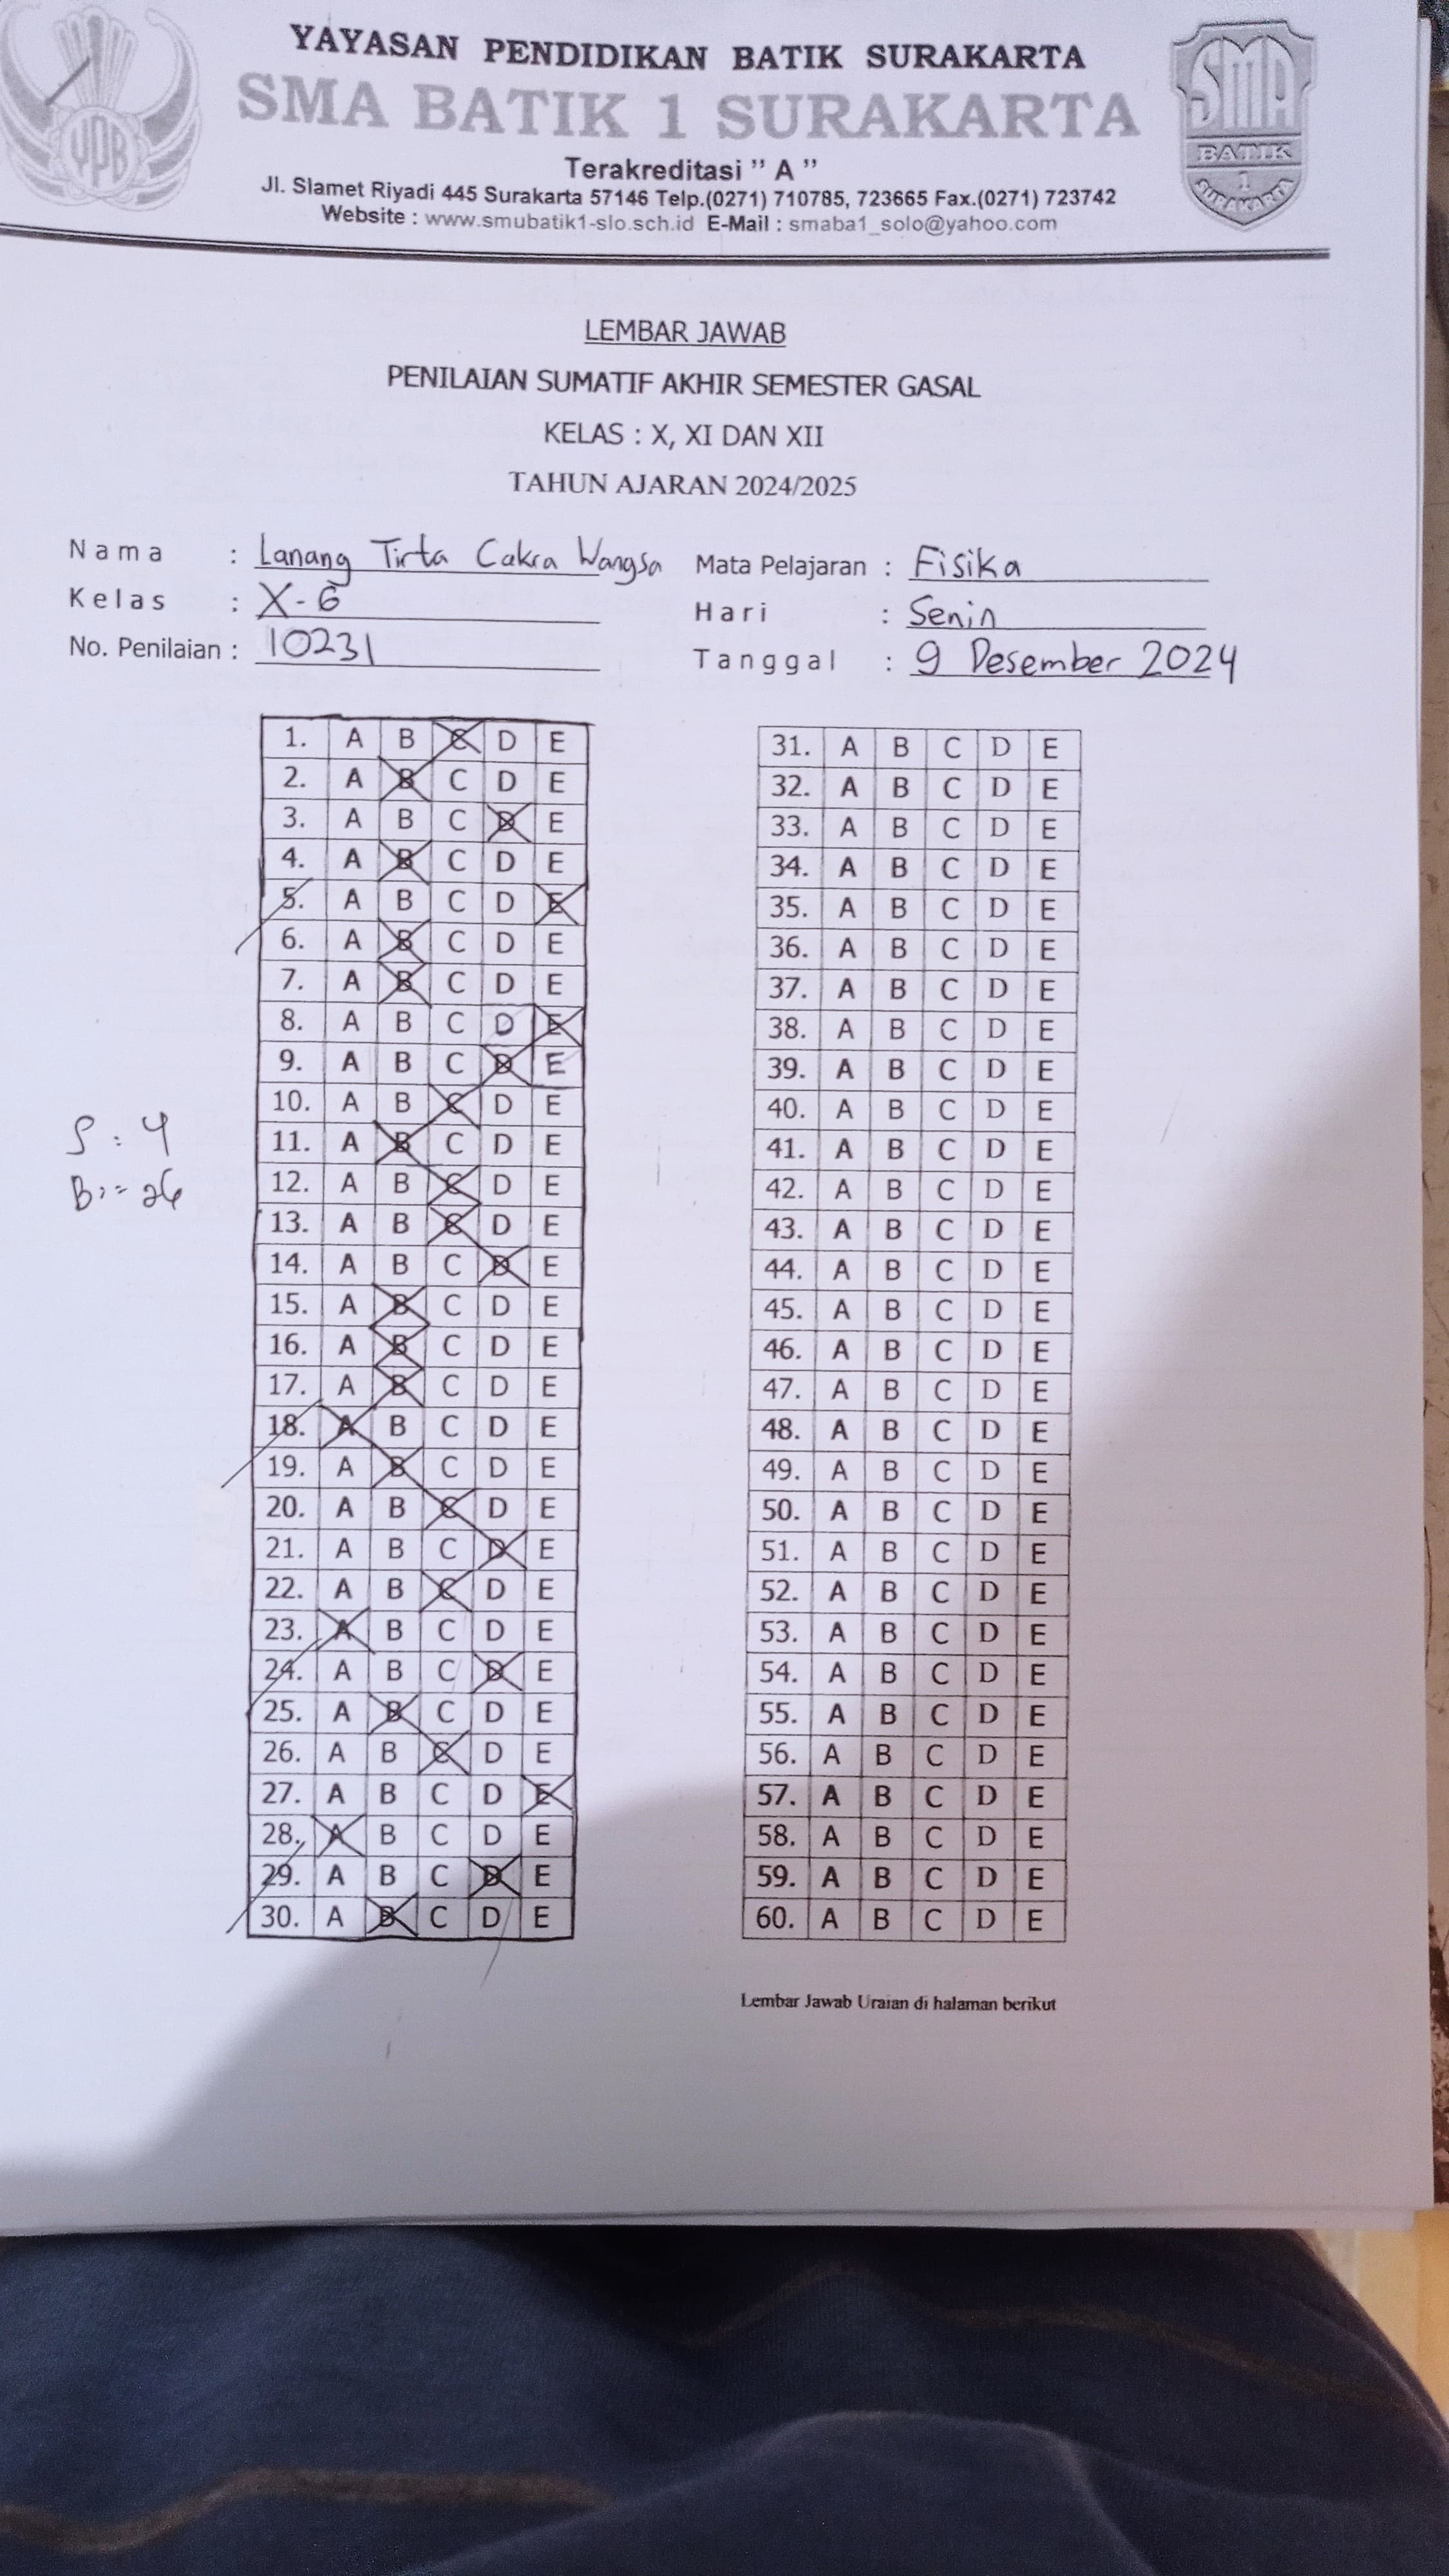 YAYASAN PENDIDIKAN BATIK SURAKARTA
SMA BATIK 1 SURAKARTA
Terakreditasi " A "
Jl. Slamet Riyadi 445 Surakarta 57146 Telp.(0271) 710785, 723665 Fax.(0271) 723742
Website : www.smubatik1-slo.sch.id E-Mail : smaba1_solo@yahoo.com
YPB
SMA
BATIK
1
SURAKARTA
LEMBAR JAWAB
PENILAIAN SUMATIF AKHIR SEMESTER GASAL
KELAS : X, XI DAN XII
TAHUN AJARAN 2024/2025
Nama : Lanang Tirta Cakra Wangsa
Kelas : X-6
No. Penilaian : 10231
Mata Pelajaran : Fisika
Hari : Senin
Tanggal : 9 Desember 2024
1. A B C D E
2. A B C D E
3. A B C D E
4. A B C D E
5. A B C D E
6. A B C D E
7. A B C D E
8. A B C D E
9. A B C D E
10. A B C D E
11. A B C D E
12. A B C D E
13. A B C D E
14. A B C D E
15. A B C D E
16. A B C D E
17. A B C D E
18. A B C D E
19. A B C D E
20. A B C D E
21. A B C D E
22. A B C D E
23. A B C D E
24. A B C D E
25. A B C D E
26. A B C D E
27. A B C D E
28. A B C D E
29. A B C D E
30. A B C D E
S : 4
B : = 26
31. A B C D E
32. A B C D E
33. A B C D E
34. A B C D E
35. A B C D E
36. A B C D E
37. A B C D E
38. A B C D E
39. A B C D E
40. A B C D E
41. A B C D E
42. A B C D E
43. A B C D E
44. A B C D E
45. A B C D E
46. A B C D E
47. A B C D E
48. A B C D E
49. A B C D E
50. A B C D E
51. A B C D E
52. A B C D E
53. A B C D E
54. A B C D E
55. A B C D E
56. A B C D E
57. A B C D E
58. A B C D E
59. A B C D E
60. A B C D E
Lembar Jawab Uraian di halaman berikut